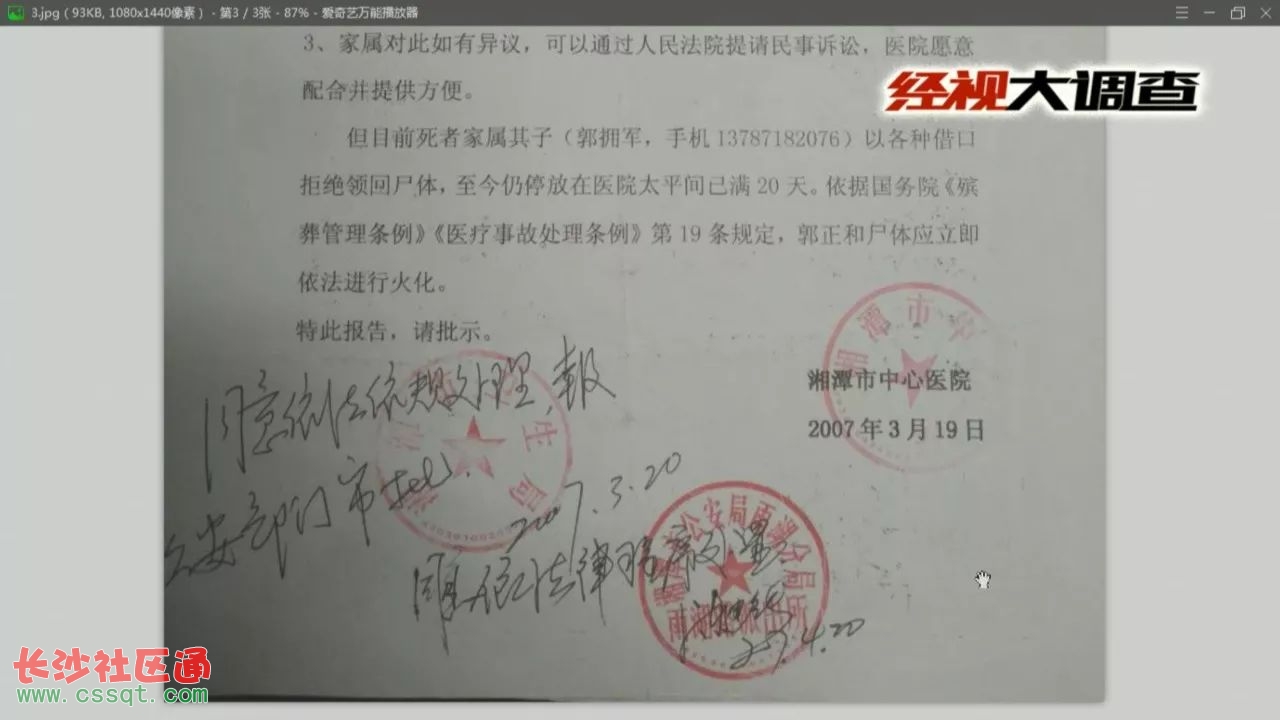 3.jpg ( 93KB, 1080x1440像素 ) - 第3 / 3张 - 87% - 爱奇艺万能播放器
3、家属对此如有异议，可以通过人民法院提请民事诉讼，医院愿意
配合并提供方便。
经视大调查
但目前死者家属其子（郭拥军，手机 13787182076）以各种借口
拒绝领回尸体，至今仍停放在医院太平间已满 20 天。依据国务院《殡
葬管理条例》《医疗事故处理条例》第 19 条规定，郭正和尸体应立即
依法进行火化。
特此报告，请批示。
湘潭市
湘潭市中心医院
2007 年 3 月 19 日
同意依法依规处理，报
公安部门审批.
2007.3.20
生局
公安局雨湖分局
同意依法律程序处置
2007.4.20
长沙社区通
www.cssqt.com